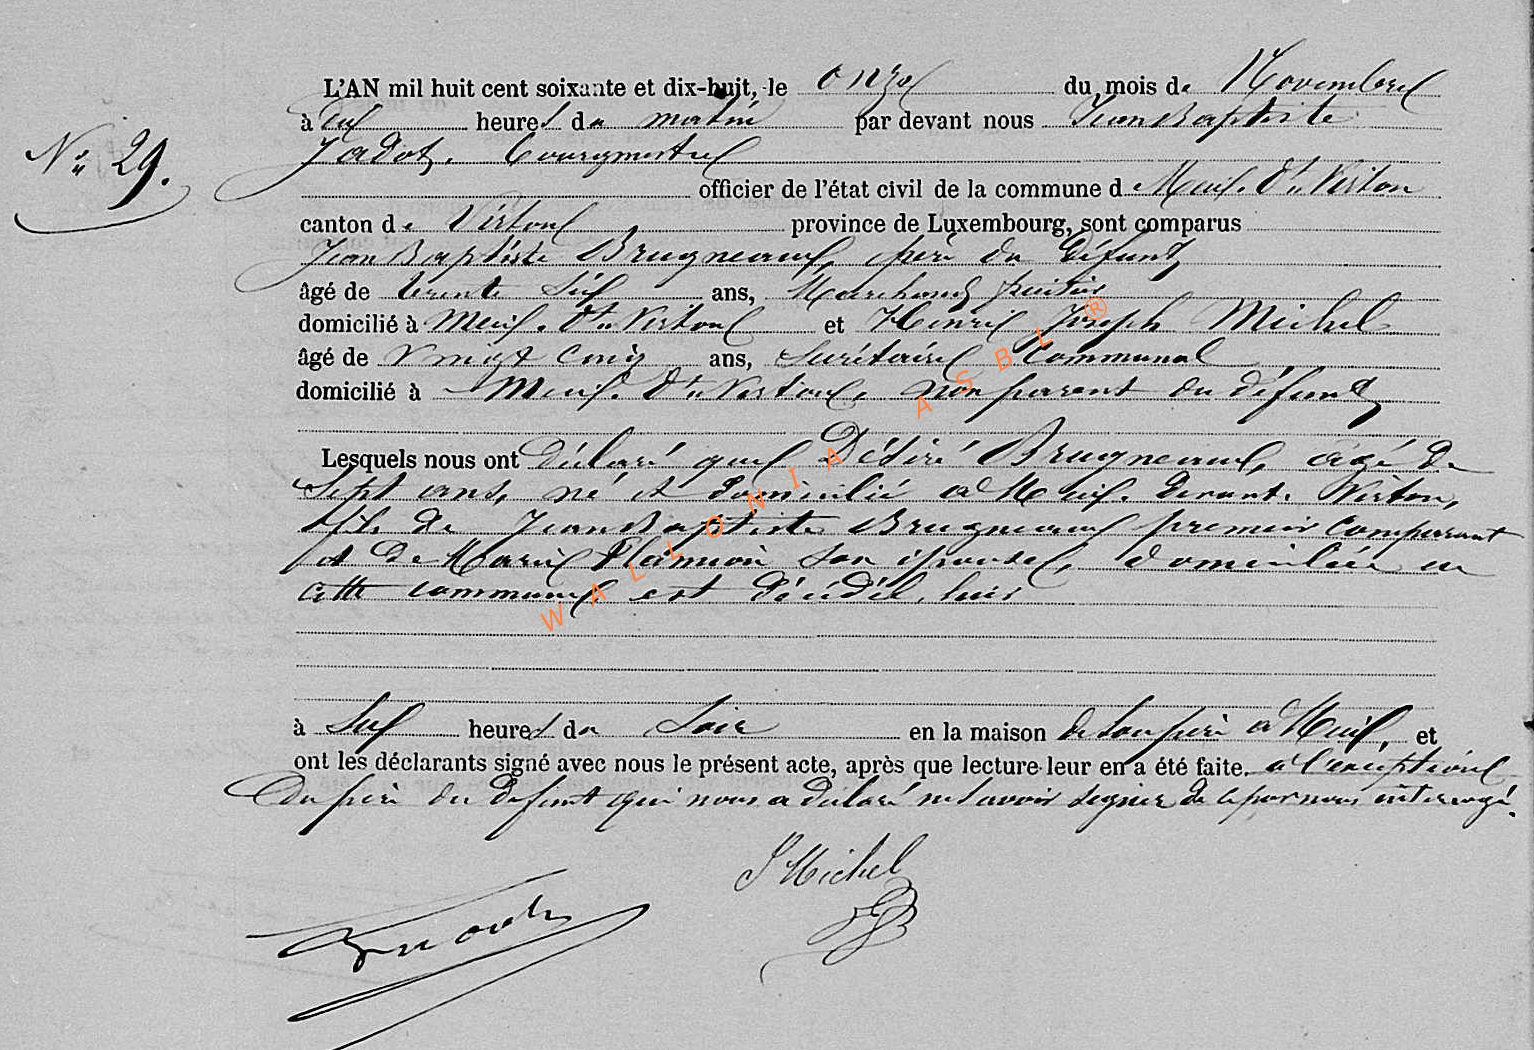 L'AN mil huit cent soixante et dix-huit, le onze du mois de Novembre
à heures du matin par devant nous Jean Baptiste
N° 29.
Jadot, Bourgmestre
officier de l'état civil de la commune de Meix-dt-Virton
canton de Virton province de Luxembourg, sont comparus
Jean Baptiste Brugneaux, père du défunt,
âgé de trente six ans, Marchand fruitier
domicilié à Meix-dt-Virton et Henri Joseph Michel
âgé de vingt cinq ans, Secrétaire Communal
domicilié à Meix-dt-Virton, non parent du défunt,
Lesquels nous ont déclaré que Désiré Brugneaux, âgé de
Sept ans, né et domicilié à Meix-devant-Virton,
fils de Jean Baptiste Brugneaux premier comparant
et de Marie Flamion son épouse, domiciliée en
cette commune est décédé, hier
à heures du Soir en la maison de son père à Meix, et
ont les déclarants signé avec nous le présent acte, après que lecture leur en a été faite. à l'exception
Du père du défunt qui nous a déclaré ne savoir signer de ce par nous interrogé.
J Michel
WALLONIA ASBL ®